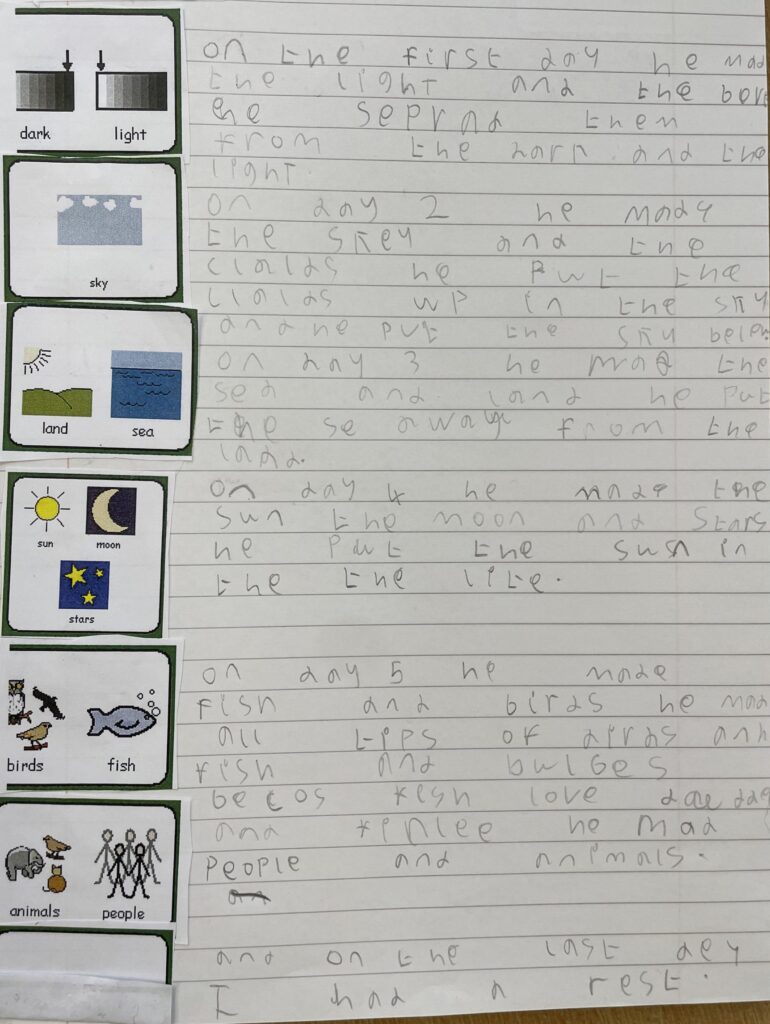 dark
light
on the first day he mad
the light and the
he seprad then
from the darn and the
light.
sky
on day 2 he made
the skey and the
clalds he put the
clalds up in the sky
and he put the sky below
land
sea
on day 3 he mad the
sea and land he put
the se away from the
land.
sun
moon
stars
on day 4 he made the
sun the moon and stars
he put the sun in
the the lite.
birds
fish
on day 5 he made
fish and birds he mad
all tips of birds and
fish and
becos fish love
and finlee he mad
animals
people
people and animals.
and on the last dey
I had a rest.